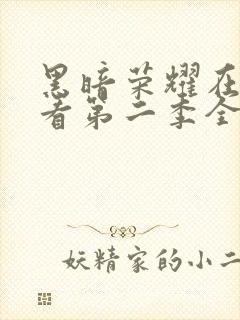 黑暗荣耀在
看第二季全
妖精家的小二